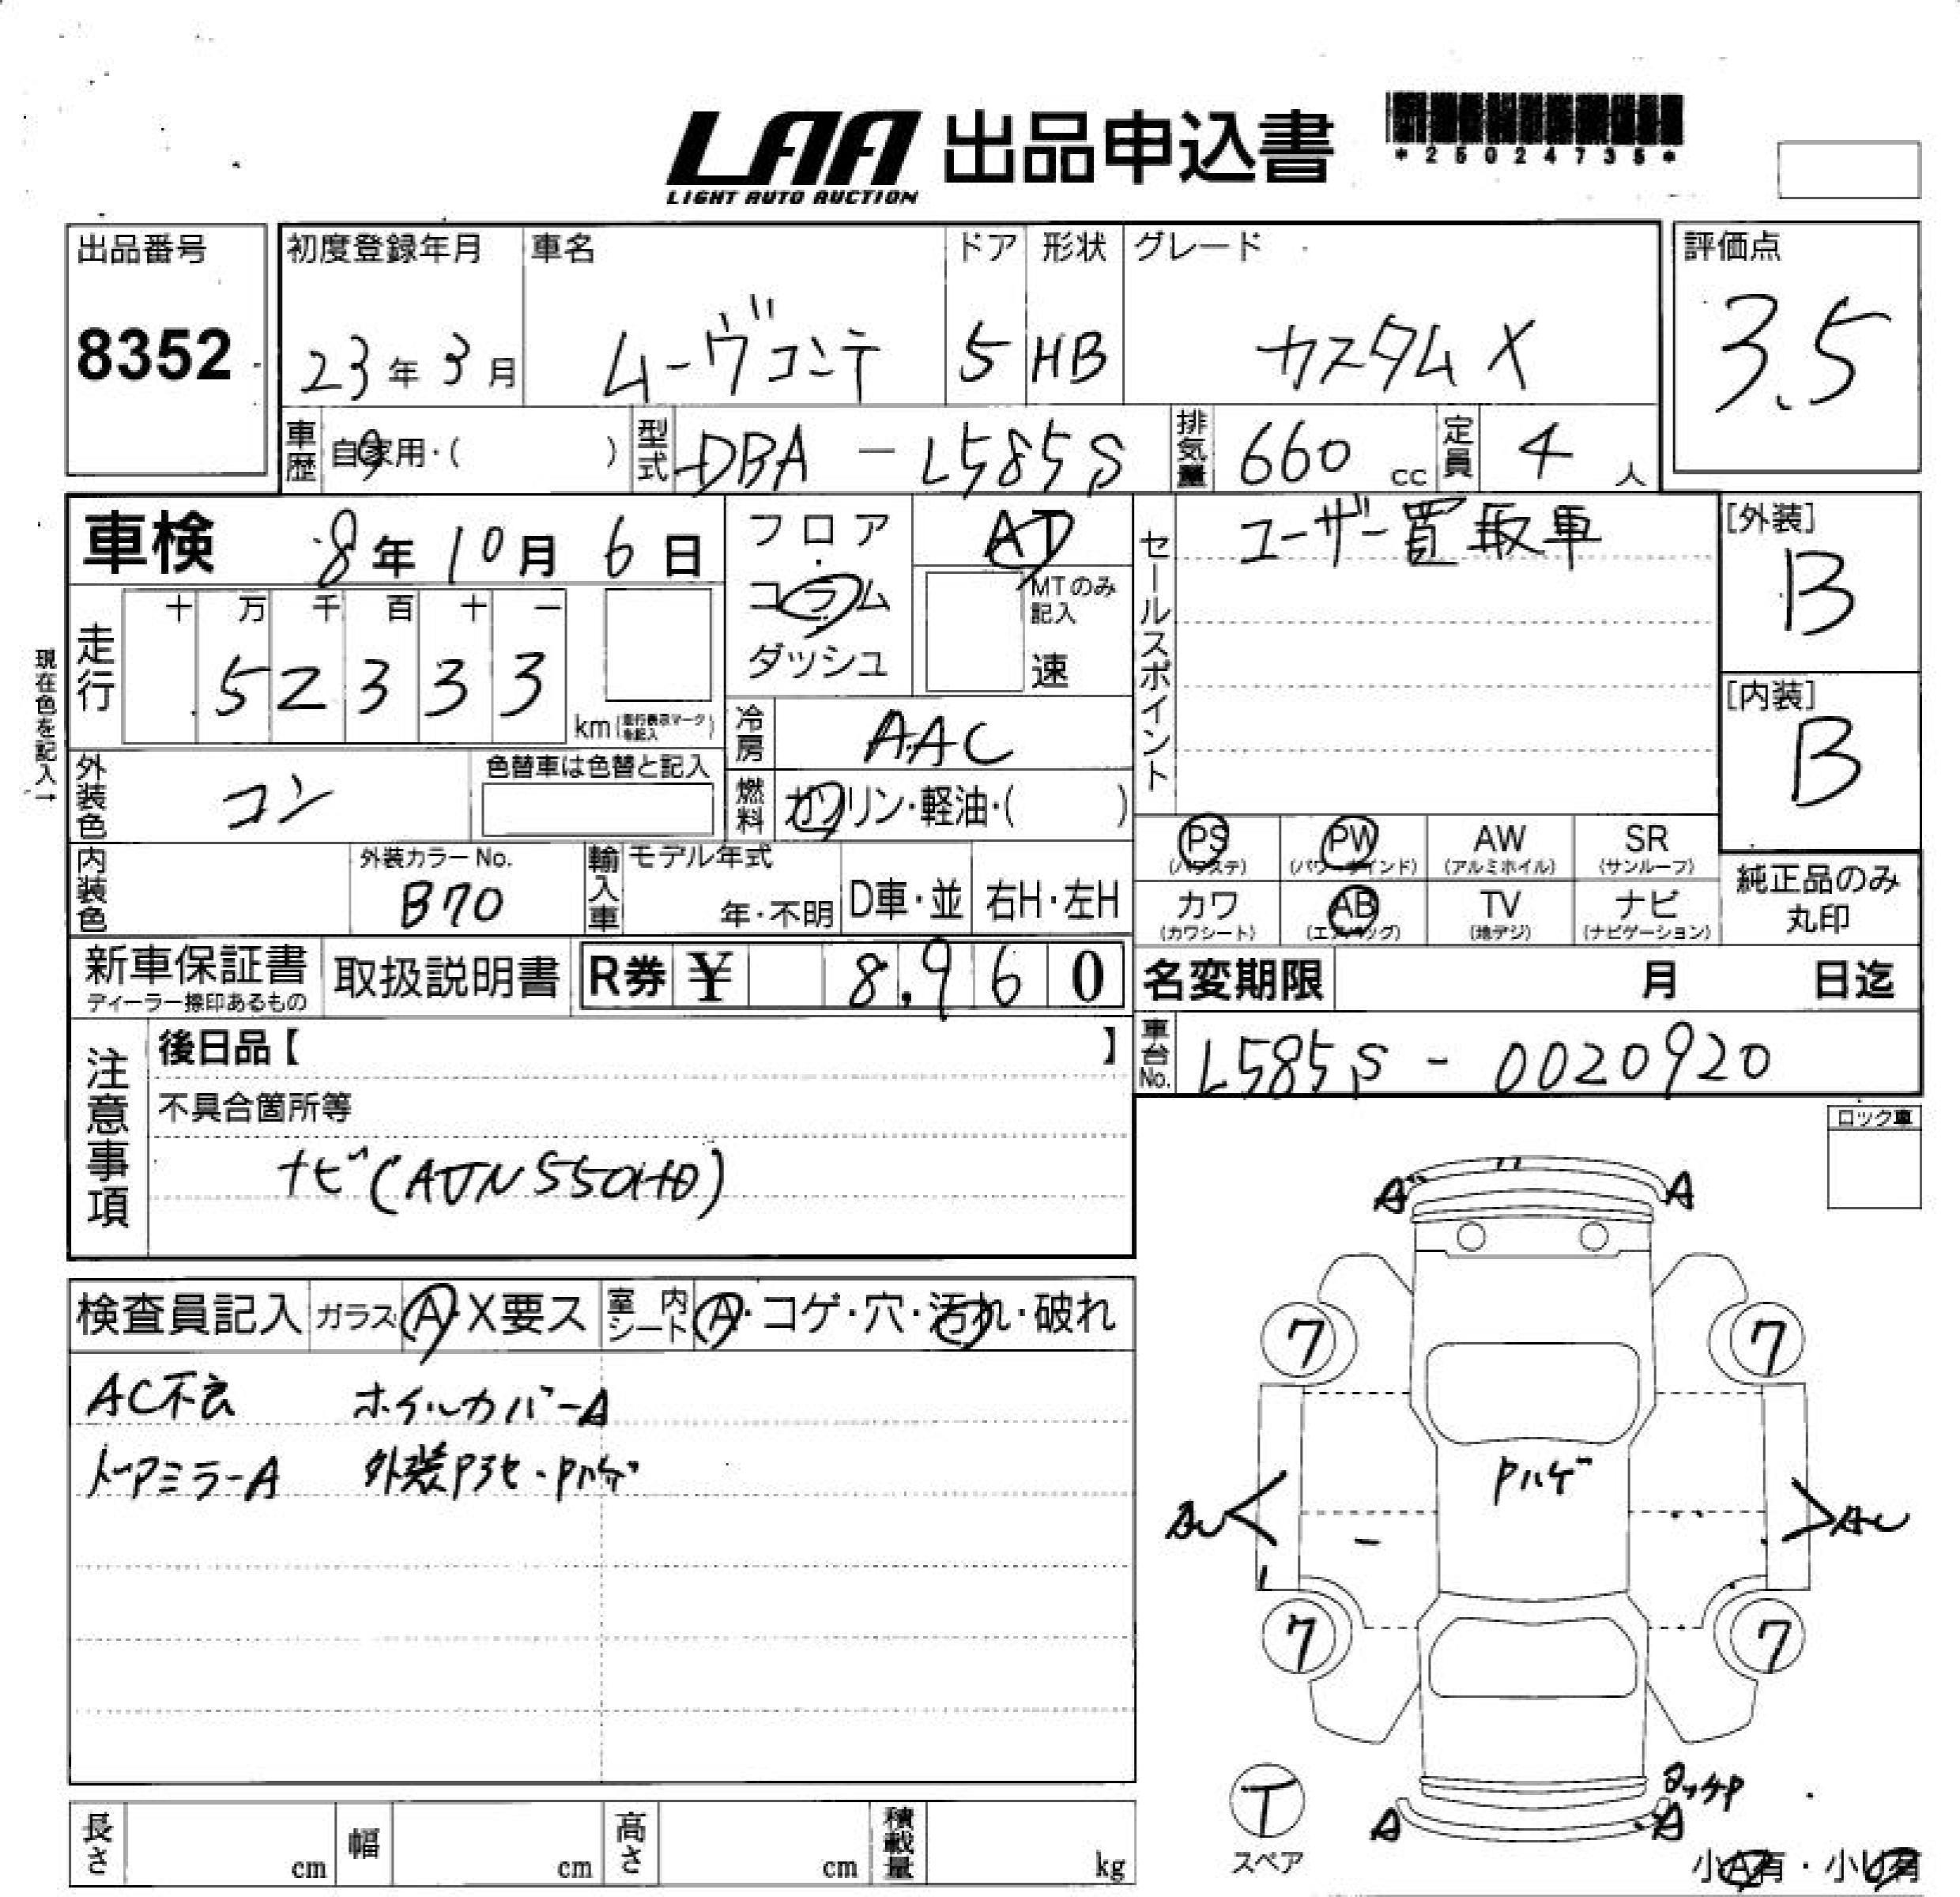 LAA 出品申込書
LIGHT AUTO AUCTION
*25024735*
出品番号
8352
初度登録年月 車名 ドア 形状 グレード
23年 3月 ムーヴコンテ 5 HB カスタムX
評価点
3.5
車歴 自家用・( ) 型式 DBA-L585S 排気量 660 cc 定員 4 人
車検 8年 10月 6日
フロア・コラム ダッシュ
AT
MTのみ記入
速
現在色を記入→
走行 十 万 千 百 十 一
52333
km
冷房 AAC
外装色 コン
色替車は色替と記入
燃料 ガソリン・軽油・( )
内装色
外装カラーNo.
B70
輸入車 モデル年式
年・不明 D車・並 右H・左H
セールスポイント
ユーザー買取車
[外装]
B
[内装]
B
PS PW AW SR
(パワステ) (パワーウインド) (アルミホイル) (サンルーフ)
カワ AB TV ナビ
(カワシート) (エアバッグ) (地デジ) (ナビゲーション)
純正品のみ
丸印
新車保証書
ディーラー捺印あるもの
取扱説明書
R券 ¥ 8,960
名変期限 月 日迄
車台No. L585S-0020920
注意事項
後日品【 】
不具合箇所等
ナビ(AVN550HD)
ロック車
検査員記入 ガラス A・X要ス 室内シート A・コゲ・穴・汚れ・破れ
AC不良 ホイルカバーA
ドアミラーA 外装Pヌケ・Pハゲ
A A
7 7
Pハゲ
7 7
A A
T
スペア
小A有・小U有
長さ cm 幅 cm 高さ cm 積載量 kg